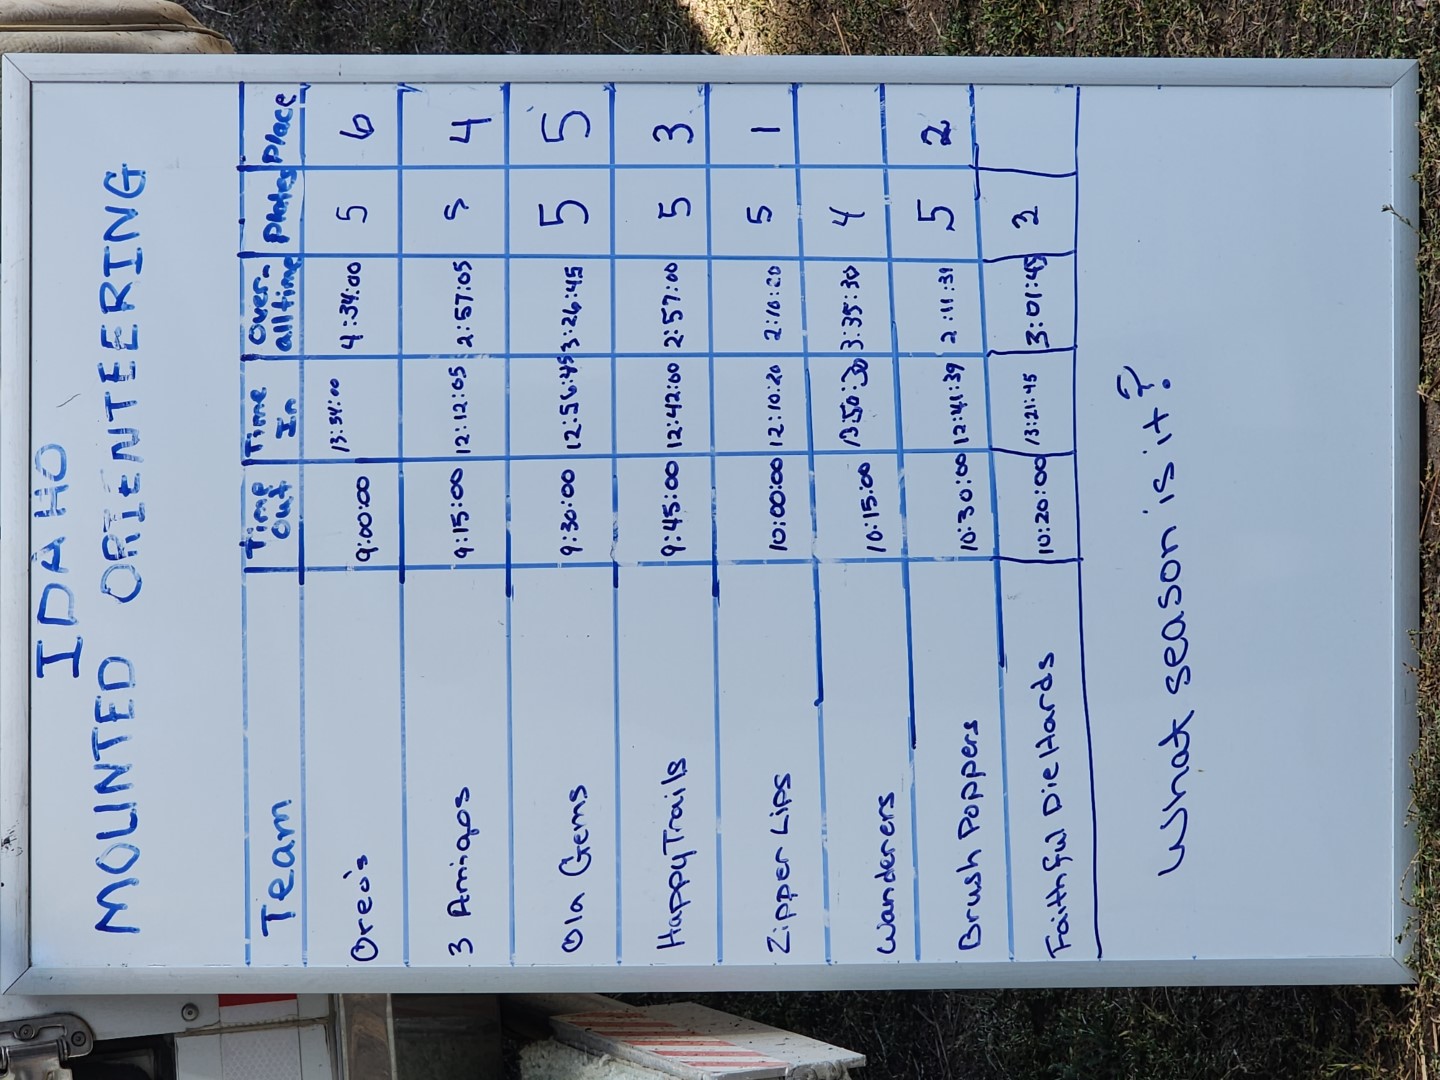 IDAHO
MOUNTED ORIENTEERING
Team Time Out Time In Over-all time Plates Place
Oreo's 9:00:00 13:34:00 4:34:00 5 6
3 Amigos 9:15:00 12:12:05 2:57:05 5 4
Ola Gems 9:30:00 12:56:45 3:26:45 5 5
Happy Trails 9:45:00 12:42:00 2:57:00 5 3
Zipper Lips 10:00:00 12:10:20 2:10:20 5 1
Wanderers 10:15:00 13:50:30 3:35:30 4
Brush Poppers 10:30:00 12:41:39 2:11:39 5 2
Faithful Die Hards 10:20:00 13:21:45 3:01:45
What season is it?